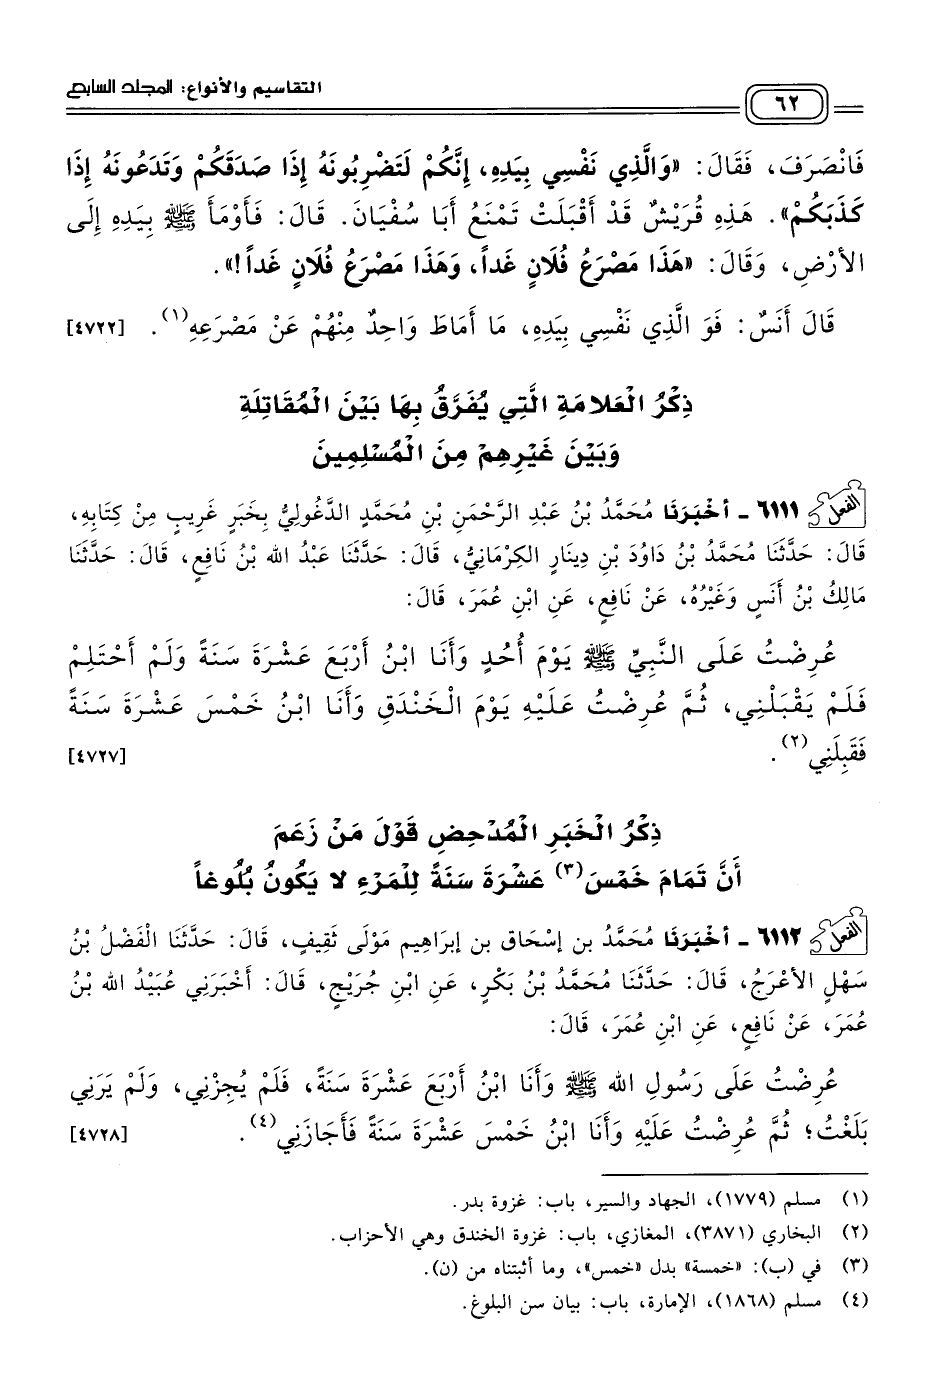 التقاسيم والأنواع: المجلد السابع
٦٢
فَانْصَرَفَ، فَقَالَ: «وَالَّذِي نَفْسِي بِيَدِهِ، إِنَّكُمْ لَتَضْرِبُونَهُ إِذَا صَدَقَكُمْ وَتَدَعُونَهُ إِذَا
كَذَبَكُمْ». هَذِهِ قُرَيْشٌ قَدْ أَقْبَلَتْ تَمْنَعُ أَبَا سُفْيَانَ. قَالَ: فَأَوْمَأَ ﷺ بِيَدِهِ إِلَى
الأَرْضِ، وَقَالَ: «هَذَا مَصْرَعُ فُلَانٍ غَداً، وَهَذَا مَصْرَعُ فُلَانٍ غَداً!».
قَالَ أَنَسٌ: فَوَ الَّذِي نَفْسِي بِيَدِهِ، مَا أَمَاطَ وَاحِدٌ مِنْهُمْ عَنْ مَصْرَعِهِ(١). [٤٧٢٢]
ذِكْرُ الْعَلامَةِ الَّتِي يُفَرَّقُ بِهَا بَيْنَ الْمُقَاتِلَةِ
وَبَيْنَ غَيْرِهِمْ مِنَ الْمُسْلِمِينَ
الفعل ٦١١١ - أخْبَرَنَا مُحَمَّدُ بْنُ عَبْدِ الرَّحْمَنِ بْنِ مُحَمَّدٍ الدَّغُولِيُّ بِخَبَرٍ غَرِيبٍ مِنْ كِتَابِهِ،
قَالَ: حَدَّثَنَا مُحَمَّدُ بْنُ دَاوُدَ بْنِ دِينَارٍ الكِرْمَانِيُّ، قَالَ: حَدَّثَنَا عَبْدُ الله بْنُ نَافِعٍ، قَالَ: حَدَّثَنَا
مَالِكُ بْنُ أَنَسٍ وَغَيْرُهُ، عَنْ نَافِعٍ، عَنِ ابْنِ عُمَرَ، قَالَ:
عُرِضْتُ عَلَى النَّبِيِّ ﷺ يَوْمَ أُحُدٍ وَأَنَا ابْنُ أَرْبَعَ عَشْرَةَ سَنَةً وَلَمْ أَحْتَلِمْ
فَلَمْ يَقْبَلْنِي، ثُمَّ عُرِضْتُ عَلَيْهِ يَوْمَ الْخَنْدَقِ وَأَنَا ابْنُ خَمْسَ عَشْرَةَ سَنَةً
فَقَبِلَنِي(٢). [٤٧٢٧]
ذِكْرُ الْخَبَرِ الْمُدْحِضِ قَوْلَ مَنْ زَعَمَ
أَنَّ تَمَامَ خَمْسَ(٣) عَشْرَةَ سَنَةً لِلْمَرْءِ لا يَكُونُ بُلُوغاً
الفعل ٦١١٢ - أخْبَرَنَا مُحَمَّدُ بن إسْحَاق بن إبرَاهِيم مَوْلَى ثَقِيفٍ، قَالَ: حَدَّثَنَا الْفَضْلُ بْنُ
سَهْلٍ الأَعْرَجُ، قَالَ: حَدَّثَنَا مُحَمَّدُ بْنُ بَكْرٍ، عَنِ ابْنِ جُرَيْجٍ، قَالَ: أَخْبَرَنِي عُبَيْدُ الله بْنُ
عُمَرَ، عَنْ نَافِعٍ، عَنِ ابْنِ عُمَرَ، قَالَ:
عُرِضْتُ عَلَى رَسُولِ الله ﷺ وَأَنَا ابْنُ أَرْبَعَ عَشْرَةَ سَنَةً، فَلَمْ يُجِزْنِي، وَلَمْ يَرَنِي
بَلَغْتُ؛ ثُمَّ عُرِضْتُ عَلَيْهِ وَأَنَا ابْنُ خَمْسَ عَشْرَةَ سَنَةً فَأَجَازَنِي(٤). [٤٧٢٨]
(١) مسلم (١٧٧٩)، الجهاد والسير، باب: غزوة بدر.
(٢) البخاري (٣٨٧١)، المغازي، باب: غزوة الخندق وهي الأحزاب.
(٣) في (ب): «خمسة» بدل «خمس»، وما أثبتناه من (ن).
(٤) مسلم (١٨٦٨)، الإمارة، باب: بيان سن البلوغ.